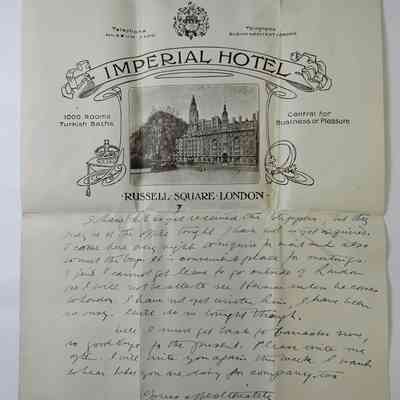 Telephone
Telegrams
IMPERIAL HOTEL
1000 Rooms
Turkish Baths
Central for
Business or Pleasure
RUSSELL SQUARE · LONDON ·
I have not as yet received the slippers, but they
may be at the office tonight I have not yet inquired.
I come here every night to inquire for mail and also
to meet the boys. It's a convenient place for meetings.
I find I cannot get leave to go outside of London
so I will not be able to see when he comes
to London. I have not yet written him, I have been
so busy. Will do so tonight though.
Well I must get back to now,
so good bye for the present. Please write me
often. I will write you again this week. I want
to hear what you are doing for company, too
Yours affectionately